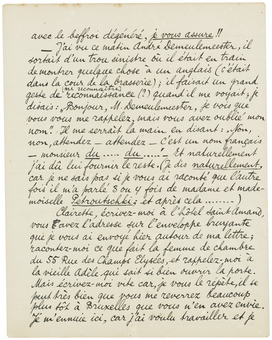 avec le beffroi dégénéré, je vous assure !!
— J'ai vu ce matin André Demeulemeester, il
sortait d'un trou sinistre où il était en train
de montrer quelque chose à un anglais (c'était
dans la cour de la brasserie); il faisait un grand
me reconnaître
geste de "reconnaissance (?)" quand il me voyait, je
disais: "Bonjour, M. Demeulemeester, je vois que
vous vous me rappelez, mais vous avez oublié mon
nom". Il me serrait la main en disant: "Non,
non, attendez — attendez — C'est un nom français
— monsieur du ..... du ..... Et naturellement
j'ai dû lui fournir le reste (je dis naturellement,
car je ne sais pas si je vous ai raconté que l'autre
fois il m'a parlé 3 ou 4 fois de madame et made-
moiselle Petroutschki; et après cela .......)
Clairette, écrivez-moi à l'Hôtel Saint Amand,
vous avez l'adresse sur l'enveloppe bruyante
que je vous ai envoyé hier autour de ma lettre;
racontez-moi ce que fait la femme de chambre
du 55 Rue des Champs Elysées, et rappelez-moi à
la vieille Adèle qui sait si bien ouvrir la porte.
Mais écrivez-moi vite car, je vous le répète, il se
peut très bien que vous me reverrez beaucoup
plus tôt à Bruxelles que vous n'en avez envie.
Je m'ennuie ici, car j'ai voulu travailler, et je